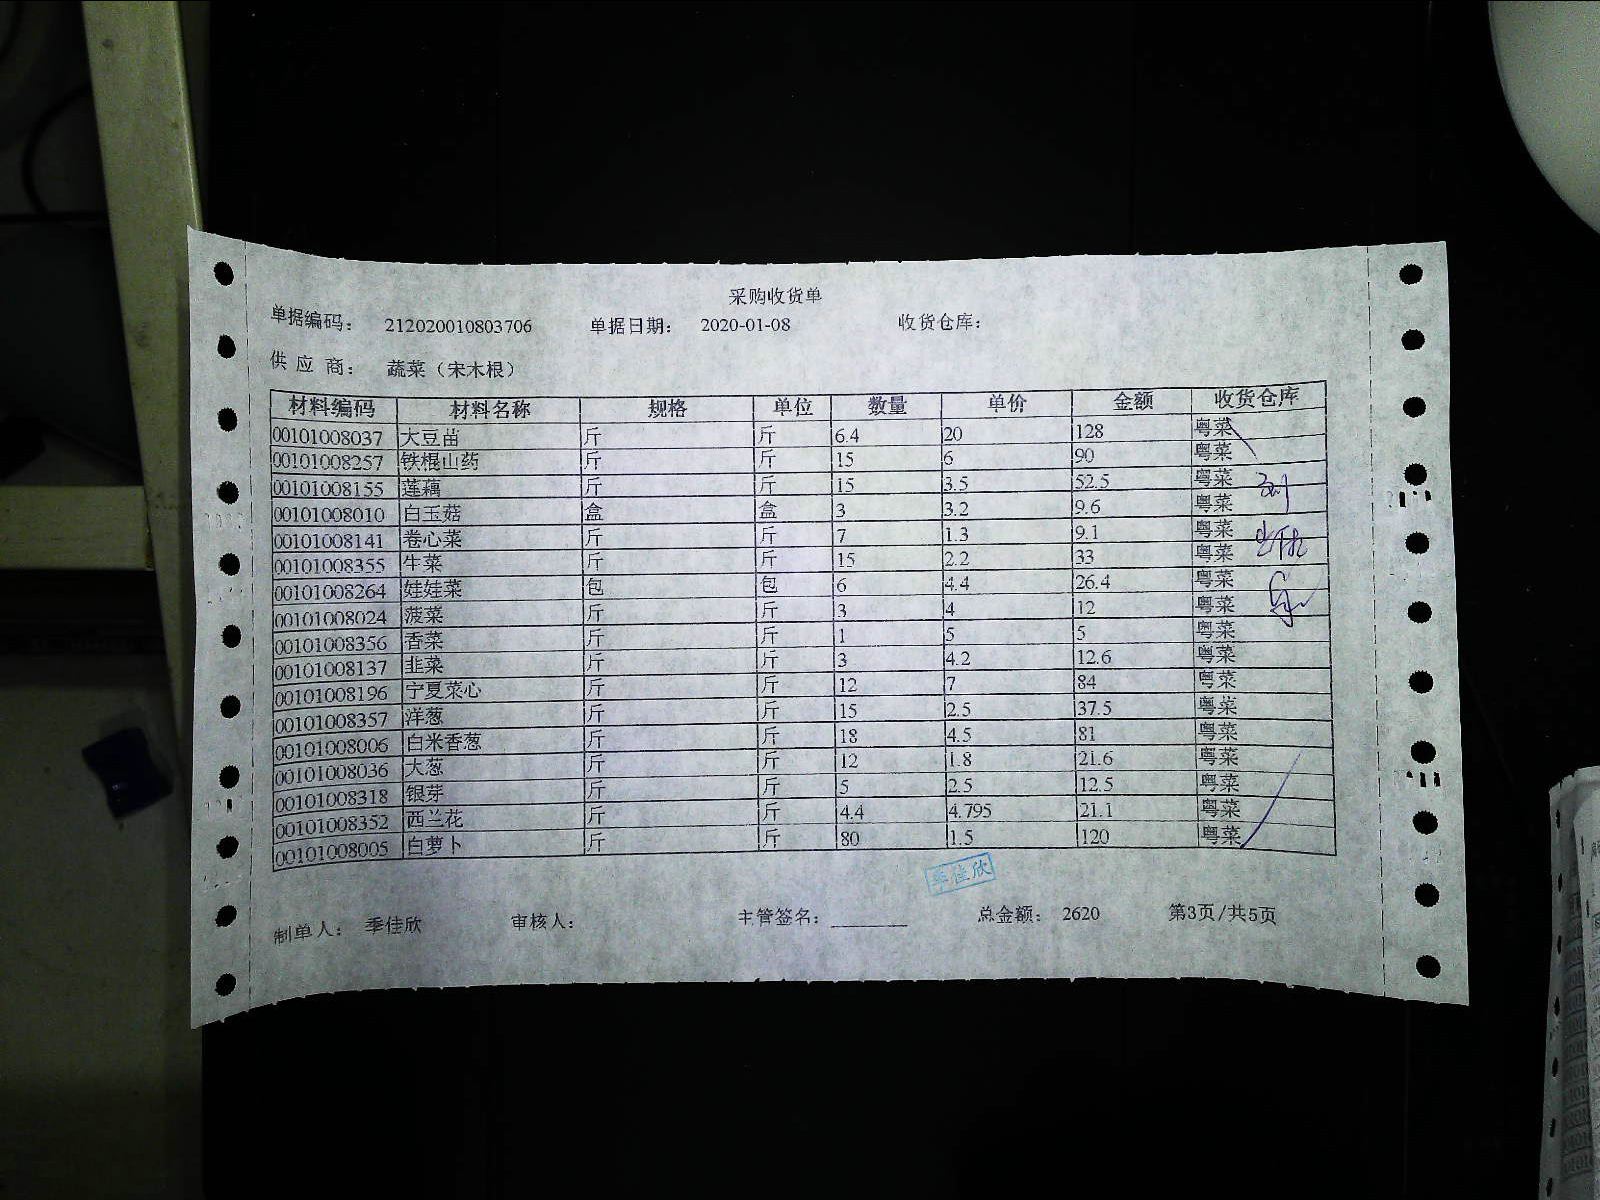 采购收货单
单据编码： 212020010803706 单据日期： 2020-01-08 收货仓库：
供 应 商： 蔬菜（宋木根）
材料编码 材料名称 规格 单位 数量 单价 金额 收货仓库
00101008037 大豆苗 斤 斤 6.4 20 128 粤菜
00101008257 铁棍山药 斤 斤 15 6 90 粤菜
00101008155 莲藕 斤 斤 15 3.5 52.5 粤菜
00101008010 白玉菇 盒 盒 3 3.2 9.6 粤菜
00101008141 卷心菜 斤 斤 7 1.3 9.1 粤菜
00101008355 生菜 斤 斤 15 2.2 33 粤菜
00101008264 娃娃菜 包 包 6 4.4 26.4 粤菜
00101008024 菠菜 斤 斤 3 4 12 粤菜
00101008356 香菜 斤 斤 1 5 5 粤菜
00101008137 韭菜 斤 斤 3 4.2 12.6 粤菜
00101008196 宁夏菜心 斤 斤 12 7 84 粤菜
00101008357 洋葱 斤 斤 15 2.5 37.5 粤菜
00101008006 白米香葱 斤 斤 18 4.5 81 粤菜
00101008036 大葱 斤 斤 12 1.8 21.6 粤菜
00101008318 银芽 斤 斤 5 2.5 12.5 粤菜
00101008352 西兰花 斤 斤 4.4 4.795 21.1 粤菜
00101008005 白萝卜 斤 斤 80 1.5 120 粤菜
季佳欣
制单人： 季佳欣 审核人： 主管签名： 总金额： 2620 第3页/共5页